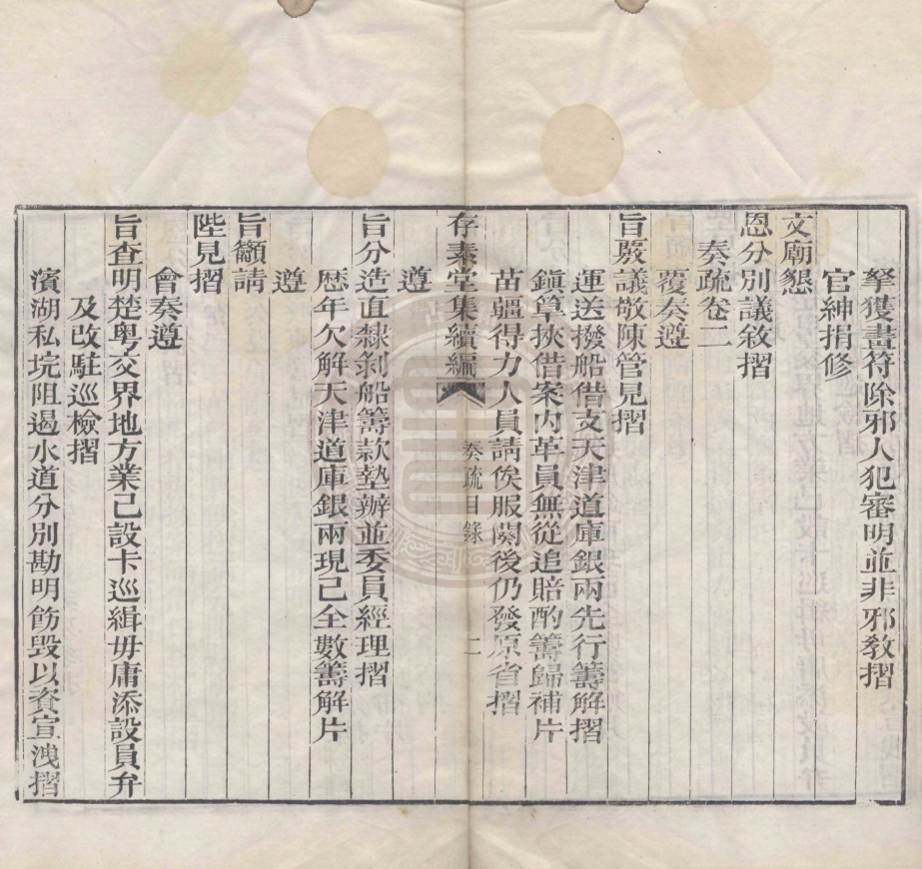 拏獲畫符除邪人犯審明並非邪敎摺
官紳捐修
文廟懇
恩分別議敘摺
奏疏卷二
覆奏遵
旨覈議敬陳管見摺
運送撥船借支天津道庫銀兩先行籌解摺
鎭筸挾借案內革員無從追賠酌籌歸補片
苗疆得力人員請俟服闋後仍發原省摺
存素堂集續編
奏疏目錄
二
遵
旨分造直隸剝船籌款墊辦並委員經理摺
歷年欠解天津道庫銀兩現已全數籌解片
遵
旨籲請
陛見摺
會奏遵
旨查明楚粤交界地方業已設卡巡緝毋庸添設員弁
及改駐巡檢摺
濱湖私垸阻遏水道分別勘明飭毀以資宣洩摺